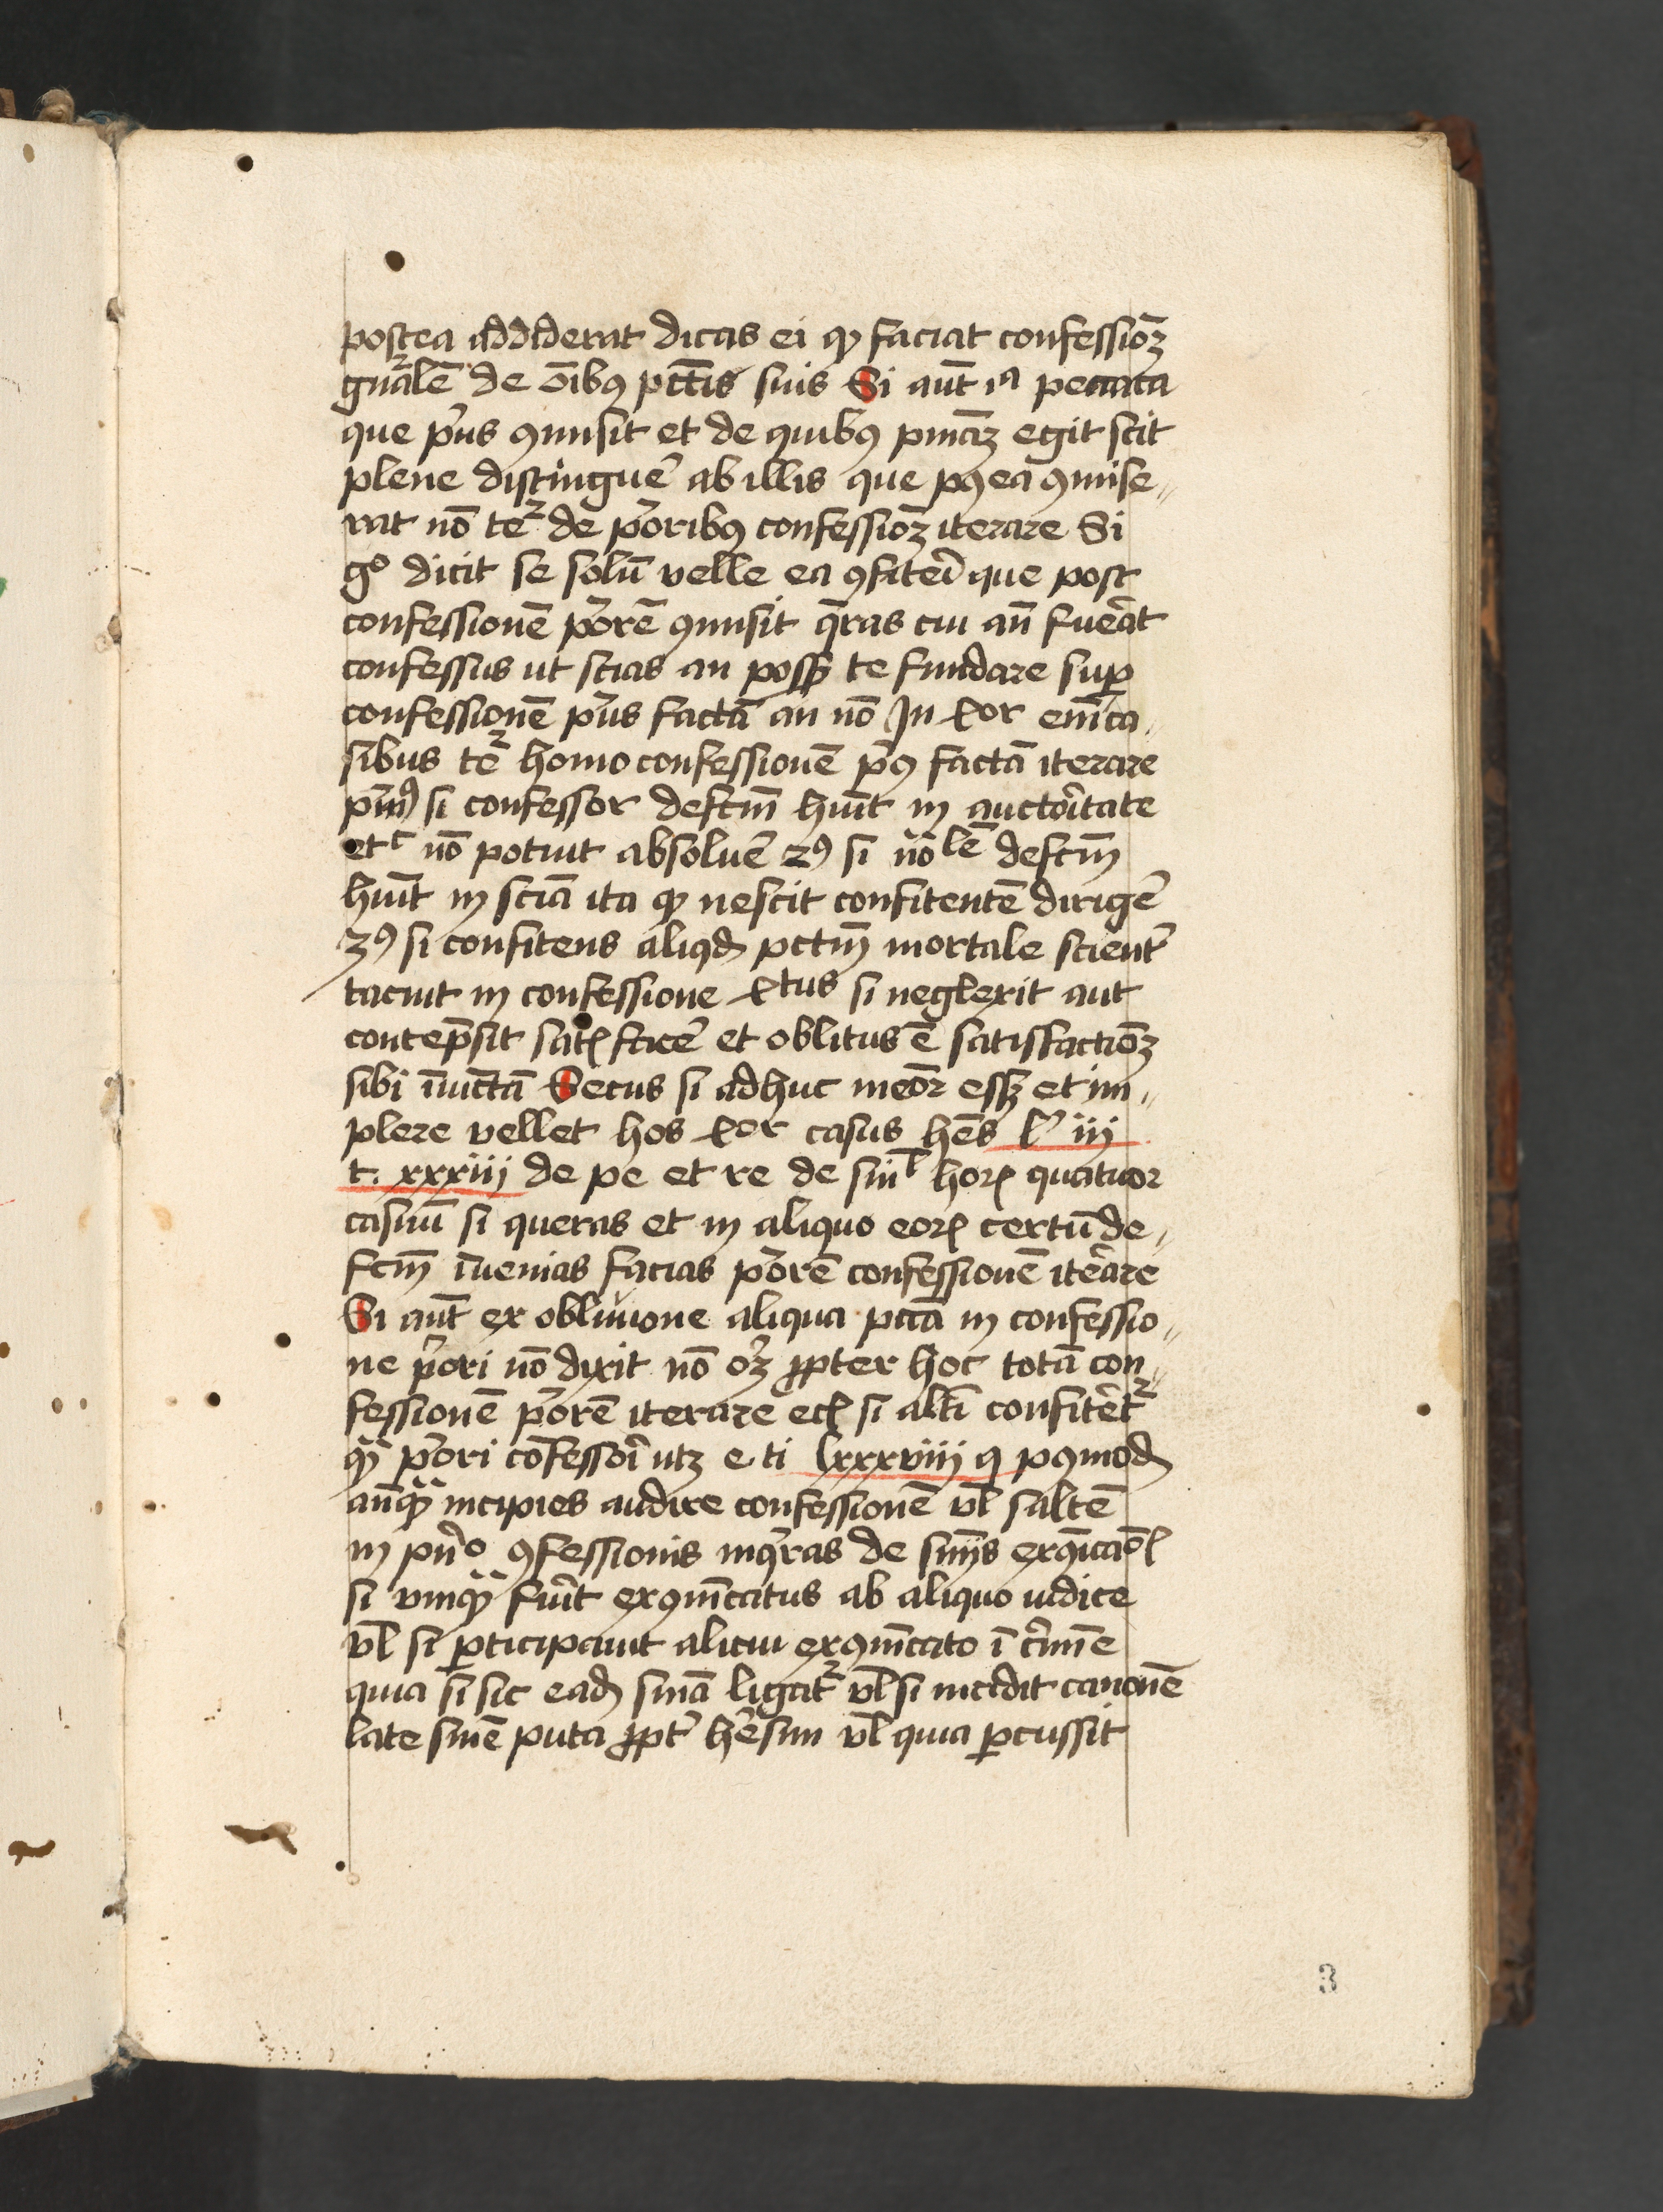 postea addiderat dicas ei qꝫ faciat confessioꝫ
gn̄alē de oībꝰ pctīs suis Si aut̄ ia peccata
que pͥus ꝯmisit et de quibꝰ pniaꝫ egit scit
plene distinguē ab illis que pꝰea ꝯmise〃
rat nō te͛ de pͥoribꝰ confessioꝫ iterare Si
gͦ dicit se solū velle ea ꝯfiteri que post
confessionē pͥorē ꝯmisit q̄ras cui an̄ fuerat
confessus ut scias an possꝫ te fundare suꝑ
confessionē pͥus factā an nō In 4or em̄ ca〃
sibus te͛ homo confessionē pͥꝰ factā iterare
pͥmꝰ si confessor defctm̄ huīt in auctoritate
etc nō potuit absoluē 2ꝰ si nō̄ lē defctm̄
huīt in sciā ita qꝫ nescit confitentē dirigē
3ꝰ si confitens aliqd pctm̄ mortale scient͛
tacuit in confessione 4tus si neglexit aut
contēpsit satꝭ facē et oblitus ē satisfactiōꝫ
sibi īiūctā Secus si adhuc meōr essꝫ et im〃
plere vellet hos 4or casus hēs lͦ iii
t. xxxiiii de pe et re de siīl horꝝ quatuor
casuū si queras et in aliquo eorꝝ certū de〃
fcm̄ īuenias facias pͥorē confessionē iterare
Si aut̄ ex obliuione aliqua pctā in confessio〃
ne pͥori nō dixit nō oꝫ ꝓpter hoc totā con〃
fessionē pͥorē iterare ecꝭ si altī confitēt͛
qꝫ pͥori cōfessori utꝫ e. ti lxxxviiii q pꝰmod
an̄qꝫ incipies audire confessionē vl̄ saltē
in pn̄ͦ ꝯfessionis inqͥras de sn̄iis exꝯicaōꝭ
si vnqꝫ fuīt exꝯm̄icatus ab aliquo iudice
vl̄ si ꝑticipauit alicui exꝯm̄icato ī cͥmīe
quia si sic eadē sn̄ia ligat͛ vl̄ si incidit canonē
late sn̄ie puta ꝓpt͛ hēsim vl̄ quia ꝑcussit
3